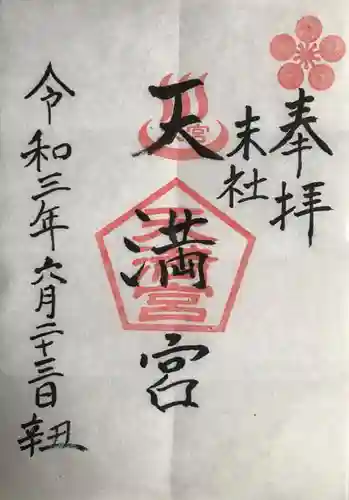 奉拝
末社
天満宮
天満宮
令和三年六月二十三日 辛丑